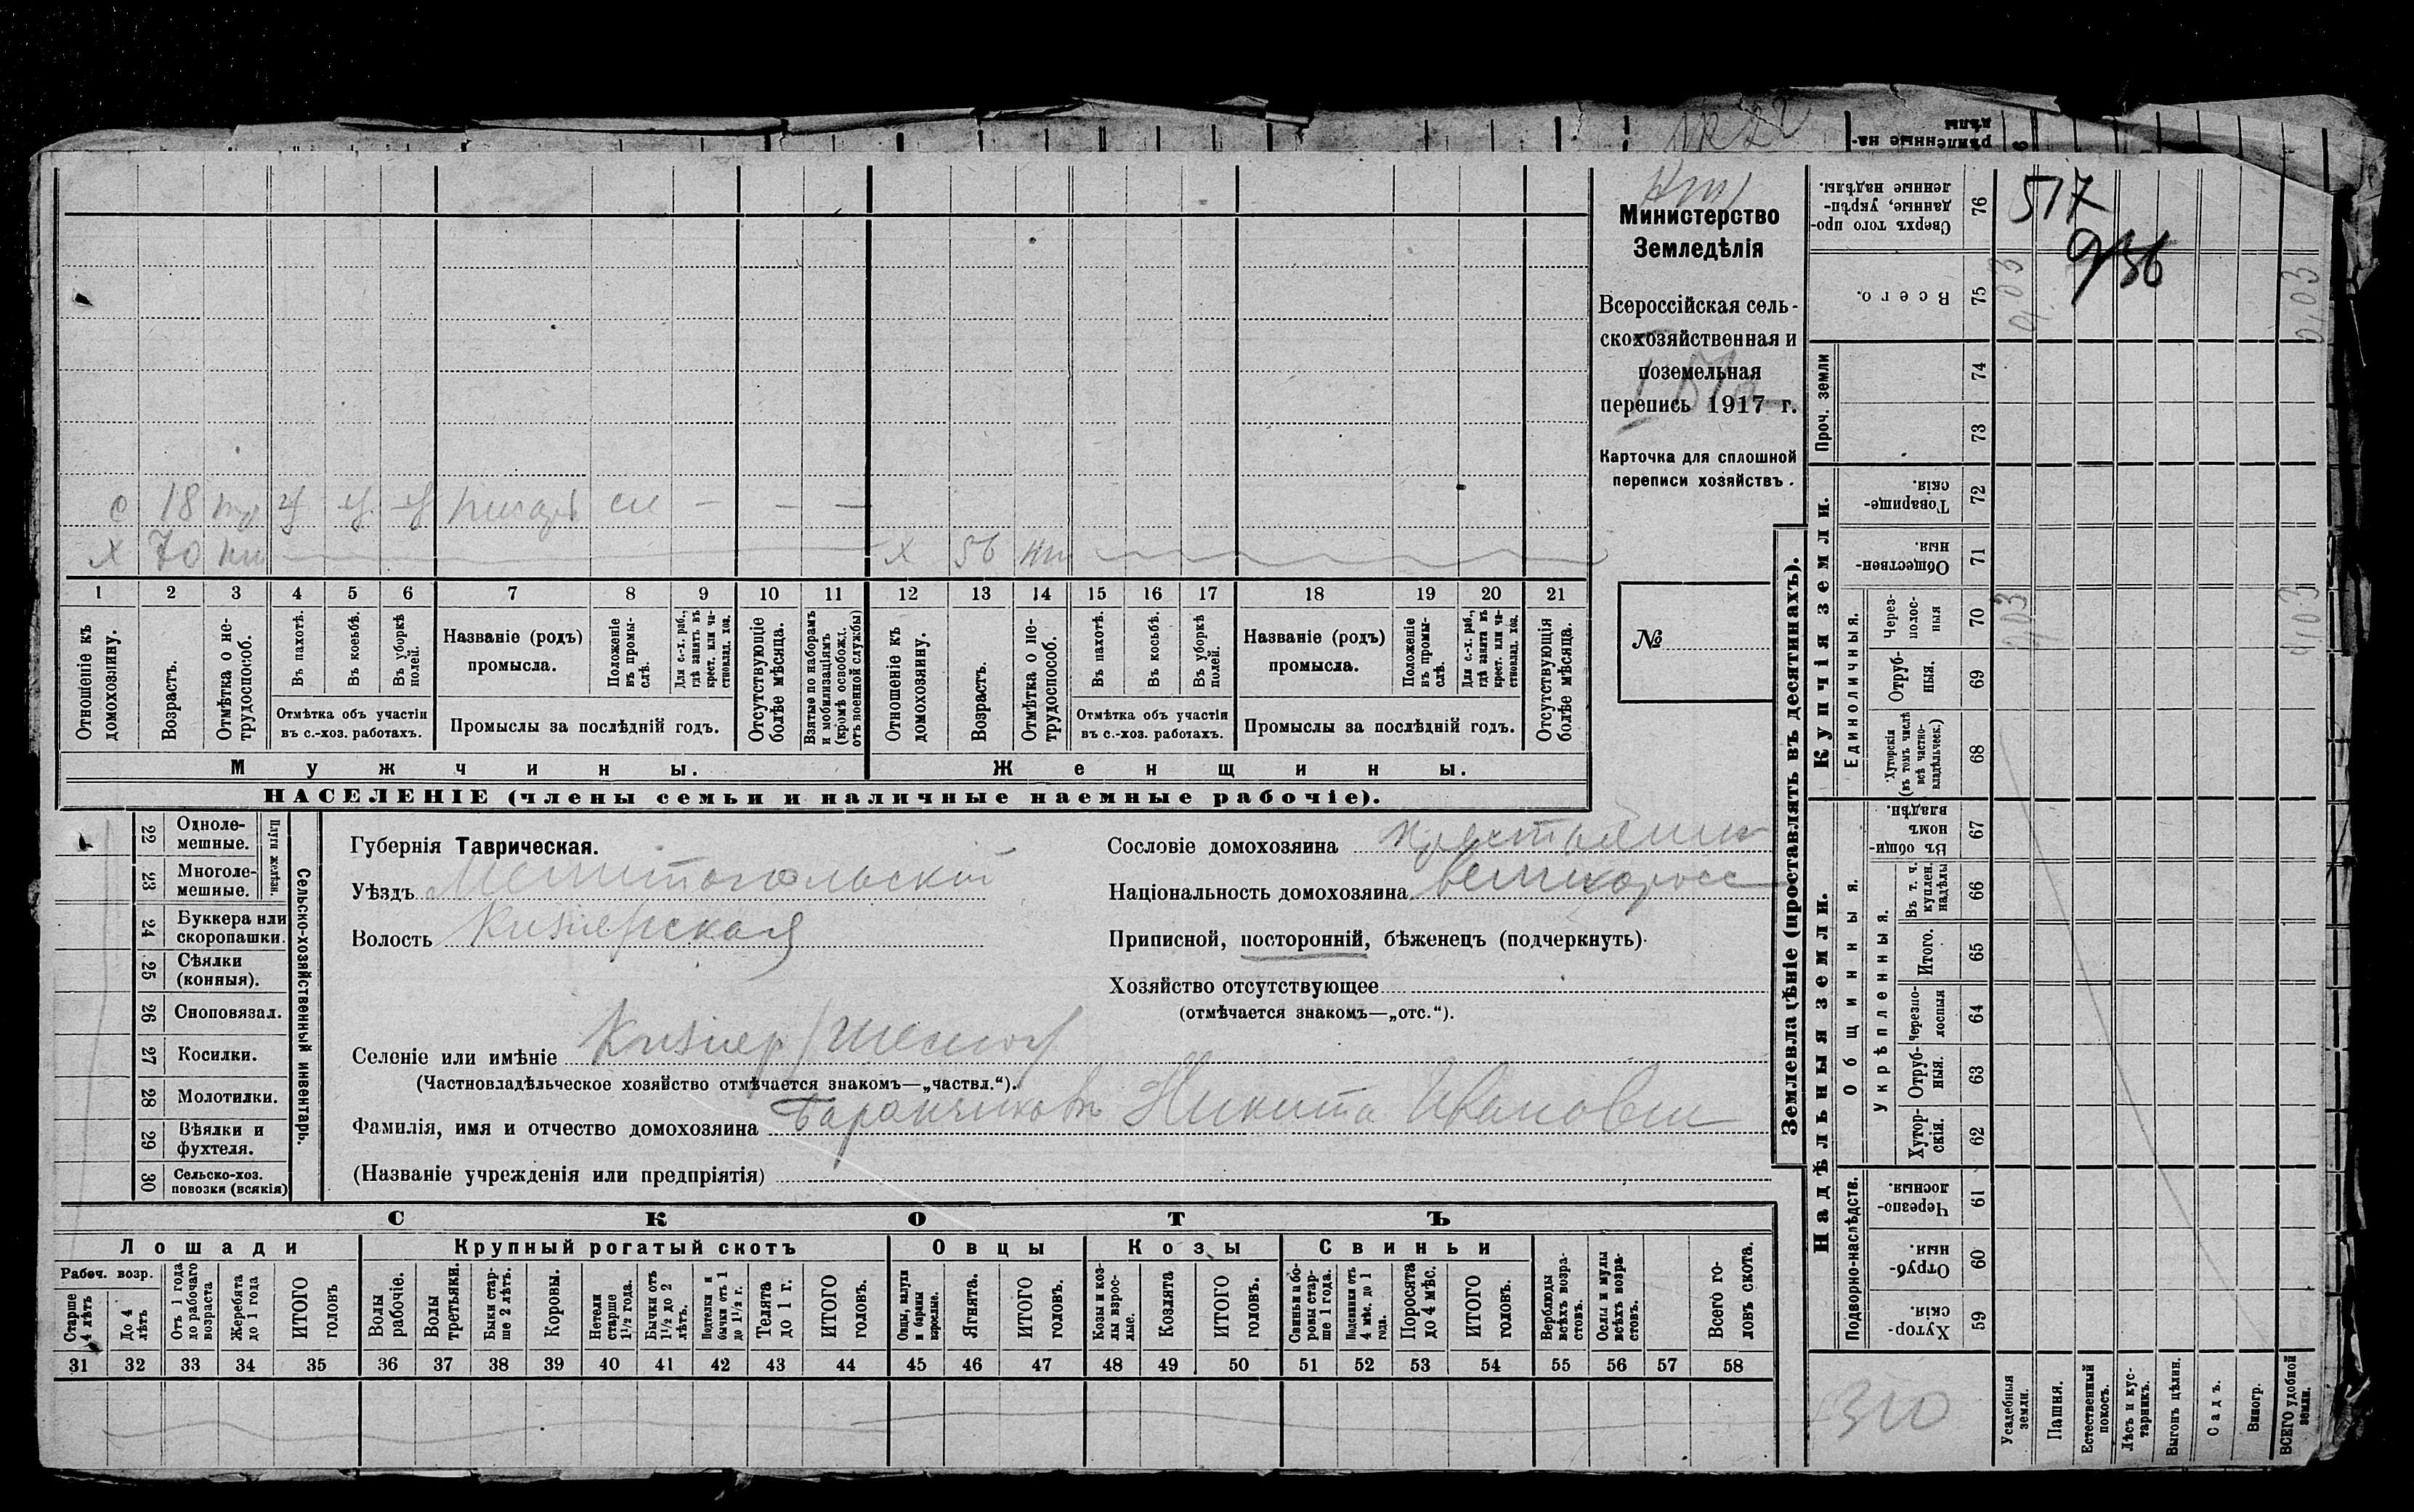 Министерство
Земледѣлія
Всероссійская сель-
скохозяйственная и
поземельная
перепись 1917 г.
Карточка для сплошной
переписи хозяйствъ.
№
с 18 ч ч ч писарь сл — — —
х 70 х 56
1 2 3 4 5 6 7 8 9 10 11 12 13 14 15 16 17 18 19 20 21
Отношеніе къ домохозяину.
Возрастъ.
Отмѣтка о не-трудоспособ.
Въ пахотѣ.
Въ косьбѣ.
Въ уборкѣ полей.
Отмѣтка объ участіи
въ с.-хоз. работахъ.
Названіе (родъ)
промысла.
Положеніе въ промы-слѣ.
Для с.-х. раб., гдѣ занятъ въ крест. или ча-стновлад. хоз.
Промыслы за послѣдній годъ.
Отсутствующіе болѣе мѣсяца.
Взятые по наборамъ и мобилизаціямъ (кромѣ освобожд. отъ военной службы)
Отношеніе къ домохозяину.
Возрастъ.
Отмѣтка о не-трудоспособ.
Въ пахотѣ.
Въ косьбѣ.
Въ уборкѣ полей.
Отмѣтка объ участіи
въ с.-хоз. работахъ.
Названіе (родъ)
промысла.
Положеніе въ промы-слѣ.
Для с.-х. раб., гдѣ занята въ крест. или ча-стновлад. хоз.
Промыслы за послѣдній годъ.
Отсутствующія болѣе мѣсяца.
Мужчины. Женщины.
НАСЕЛЕНІЕ (члены семьи и наличные наемные рабочіе).
Сельско-хозяйственный инвентарь.
Плуги желѣзн.
22 Одноле-мешные.
23 Многоле-мешные.
24 Буккера или скоропашки.
25 Сѣялки (конныя).
26 Сноповязал.
27 Косилки.
28 Молотилки.
29 Вѣялки и фухтеля.
30 Сельско-хоз. повозки (всякія)
Губернія Таврическая.
Уѣздъ Мелитопольскій
Волость Кизіярская
Селеніе или имѣніе Кизіяр
(Частновладѣльческое хозяйство отмѣчается знакомъ—„частвл.“).
Фамилія, имя и отчество домохозяина Баранчиковъ Никита Иванович
(Названіе учрежденія или предпріятія)
Сословіе домохозяина крестьянин
Національность домохозяина великоросс
Приписной, посторонній, бѣженецъ (подчеркнуть)
Хозяйство отсутствующее
(отмѣчается знакомъ—„отс.“).
СКОТЪ
Лошади Крупный рогатый скотъ Овцы Козы Свиньи
Рабоч. возр.
Старше 4 лѣтъ
До 4 лѣтъ
Отъ 1 года до рабочаго возраста
Жеребята до 1 года
ИТОГО головъ
Волы рабочіе.
Волы третьяки.
Быки стар-ше 2 лѣтъ.
Коровы.
Нетели старше 1½ года.
Бычки отъ 1½ до 2 лѣтъ.
Подтелки и бычки отъ 1 до 1½ г.
Телята до 1 г.
ИТОГО головъ.
Овцы, валухи и бараны взрослые.
Ягнята.
ИТОГО головъ.
Козы и коз-лы взрос-лые.
Козлята
ИТОГО головъ.
Свиньи и бо-ровы стар-ше 1 года.
Подсвинки отъ 4 мѣс. до 1 года.
Поросята до 4 мѣс.
ИТОГО головъ.
Верблюды всѣхъ возра-стовъ.
Ослы и мулы всѣхъ возра-стовъ.
Всего го-ловъ скота.
31 32 33 34 35 36 37 38 39 40 41 42 43 44 45 46 47 48 49 50 51 52 53 54 55 56 57 58
Землевладѣніе (проставлять въ десятинахъ).
Купчія земли.
Надѣльныя земли.
Сверхъ того про-данные, укрѣп-ленные надѣлы. 76
517
936
Всего. 75
0,03
0,03
Проч. земли
74
73
Товарище-скія. 72
Обществен-ныя. 71
Единоличныя.
Через-полос-ныя 70
0,03
0,03
Отруб-ныя. 69
Хуторскія (въ томъ числѣ всѣ частно-владѣльческ.) 68
Общинныя.
Въ общи-номъ владѣн. 67
Укрѣпленныя.
Въ т. ч. куплен. надѣлы 66
Итого. 65
Черезпо-лосныя 64
Отруб-ныя. 63
Хутор-скія. 62
Подворно-наслѣдств.
Черезпо-лосныя. 61
Отруб-ныя. 60
Хутор-скія. 59
310
Усадебныя земли.
Пашня.
Естественный покосъ.
Лѣсъ и кус-тарникъ.
Выгонъ цѣлин.
Садъ.
Виногр.
ВСЕГО удобной земли.